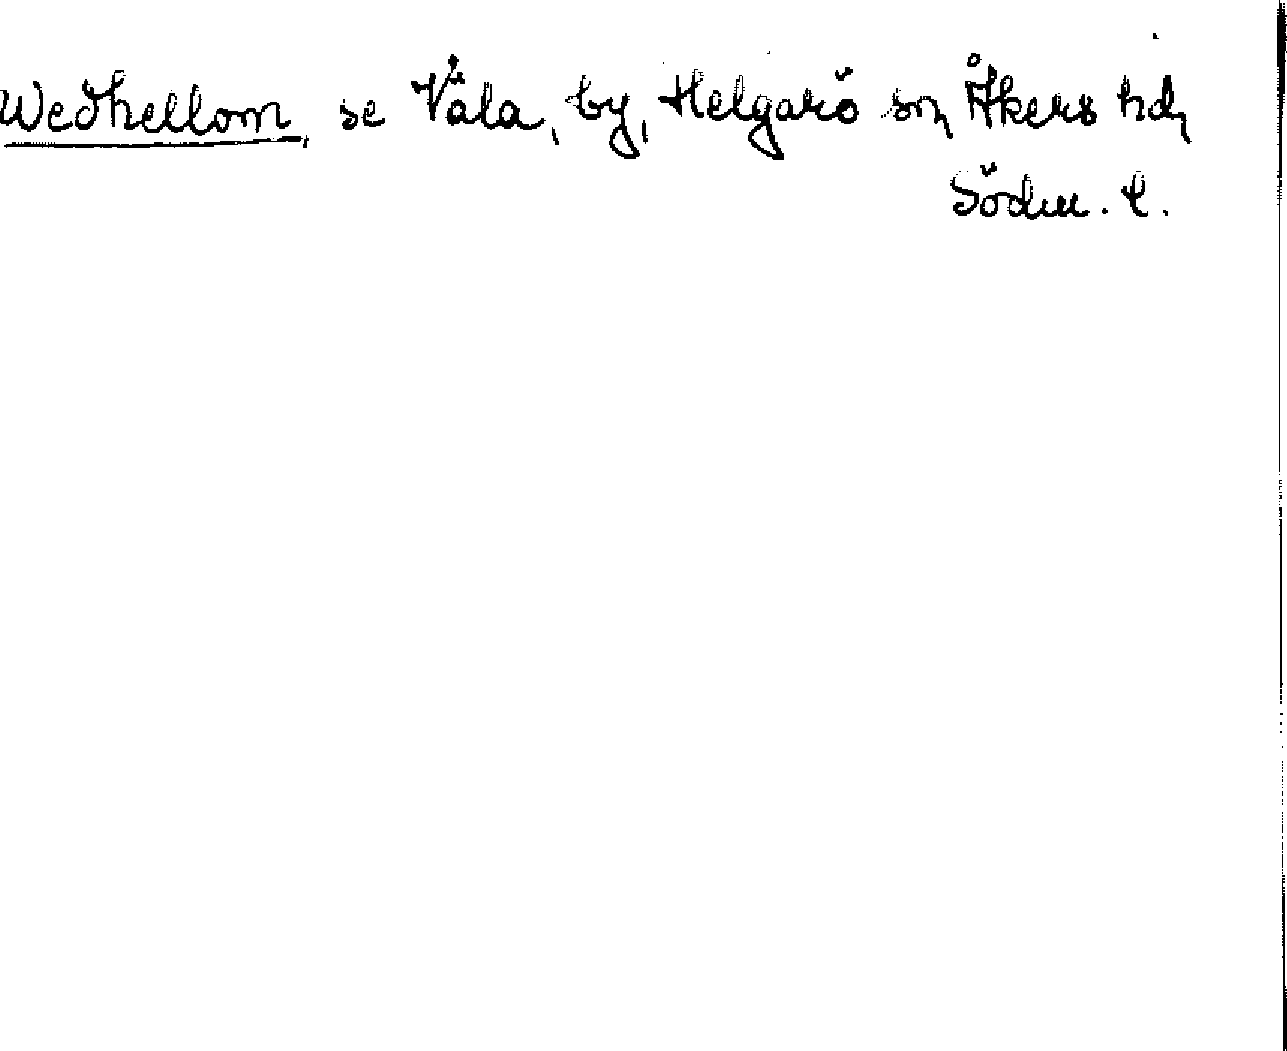 Wedhellom, se Väla, by, Helgarö sn, Åkers hd,
Söderm. l.